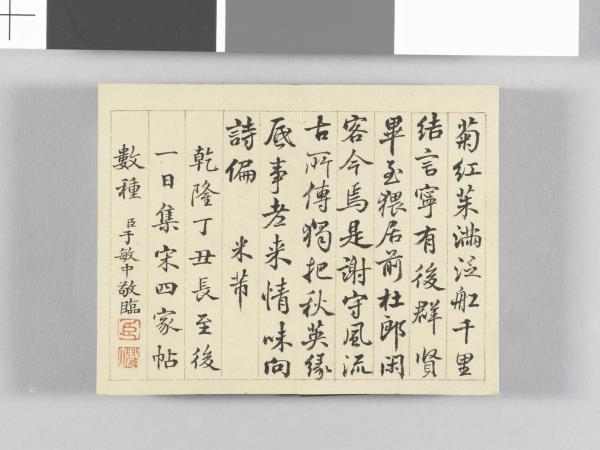 菊紅茱滿泛舡千里
結言寧有後群賢
畢至猥居前杜郎閑
客今焉是謝守風流
古所傳獨把秋英緣
底事老来情味向
詩偏　米芾
乾隆丁丑長至後
一日集宋四家帖
數種　臣于敏中敬臨
臣